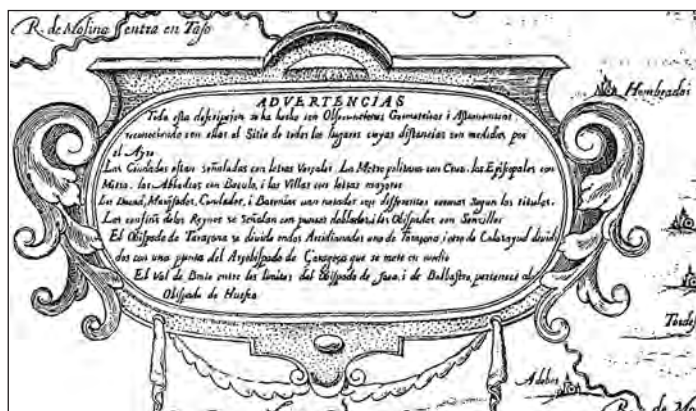 R. de Molina entra en Tajo
Hombrados
ADVERTENCIAS
Toda esta descripcion se ha hecho con Observaciones Geometricas i Astronomicas
reconociendo con ellas el Sitio de todos los lugares cuyas distancias son medidas por
el Ayre
Las Ciudades estan señaladas con letras Versales. La Metropolitana con Cruz. las Episcopales con
Mitra. las Abbadias con Baculo, i las Villas con letras mayores
Los Ducad, Marquesados, Condados, i Baronias van notados con differentes coronas segun los titulos.
Los confines delos Reynos se Señalan con puntos doblados, i los Obispados con Sencillos
El Obispado de Taraçona se divide endos Arcidianados uno de Taraçona, i otro de Calatayud dividi
dos con una punta del Arzobispado de Çaragoça que se mete en medio
El Val de Broto entre los limites del Obispado de Jaca, i de Balbastro, pertenece al
Obispado de Huesca
Adobes